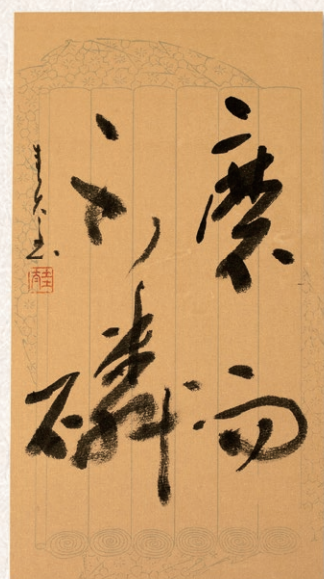 磨而
不磷